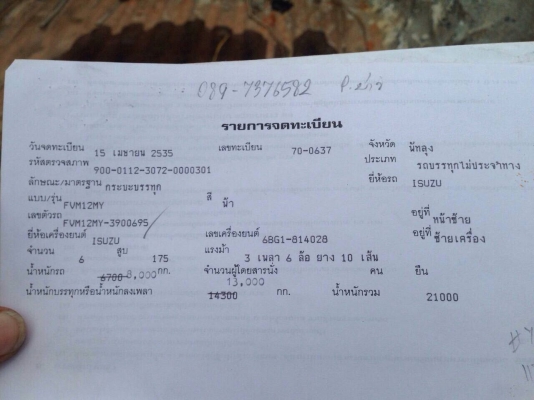 089-7376582
รายการจดทะเบียน
วันจดทะเบียน 15 เมษายน 2535 เลขทะเบียน 70-0637 จังหวัด พัทลุง
รหัสตรวจสภาพ 900-0112-3072-0000301 ประเภท รถบรรทุกไม่ประจำทาง
ลักษณะ/มาตรฐาน กระบะบรรทุก ยี่ห้อรถ ISUZU
แบบ/รุ่น FVM12MY สี ฟ้า
เลขตัวรถ FVM12MY-3900695 อยู่ที่ หน้าซ้าย
ยี่ห้อเครื่องยนต์ ISUZU เลขเครื่องยนต์ 6BG1-814028 อยู่ที่ ซ้ายเครื่อง
จำนวน 6 สูบ 175 แรงม้า 3 เพลา 6 ล้อ ยาง 10 เส้น
น้ำหนักรถ 6700 8,000 กก. จำนวนผู้โดยสารนั่ง คน ยืน
13,000
น้ำหนักบรรทุกหรือน้ำหนักลงเพลา 14300 กก. น้ำหนักรวม 21000